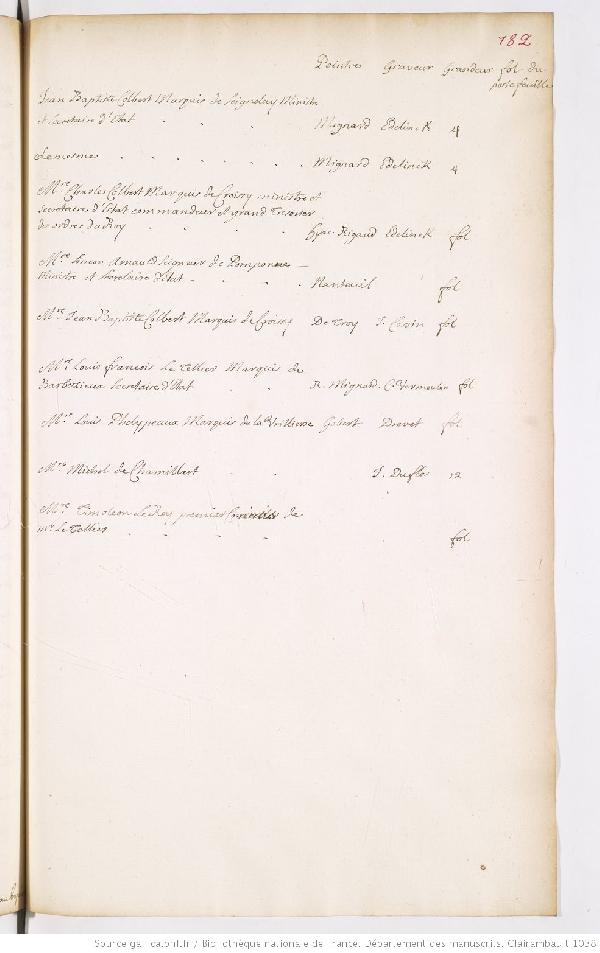 182
Peintres Graveur Grandeur fol. du
portefeuille
Jean Baptiste Colbert Marquis de Seignelay Ministre
et Secretaire d'Etat . . . Mignard Edelinck 4
Le mesme . . . . . . Mignard Edelinck 4
Mre Charles Colbert Marquis de Croissy ministre et
secretaire d'Estat commandeur et grand Tresorier
des ordres du Roy . . . . Hyac. Rigaud Edelinck fol
Mre Simon Arnauld Seigneur de Pomponne
Ministre et Secretaire d'Etat . . . Nanteuil fol
Mre Jean Baptiste Colbert Marquis de Croissy De Troy fol
Mre Louis francois le Tellier Marquis de
Barbesieux Secretaire d'Etat . . P. Mignard. C. Vermeulen fol
Mre Louis Phelypeaux Marquis de la Vrilliere Gobert Drevet fol
Mre Michel de Chamillart . . J. Duflo 12
Mre Timoleon premier Commis de
mr le Tellier . . . . fol
Source gallica.bnf.fr / Bibliothèque nationale de France. Département des manuscrits. Clairambault 1038